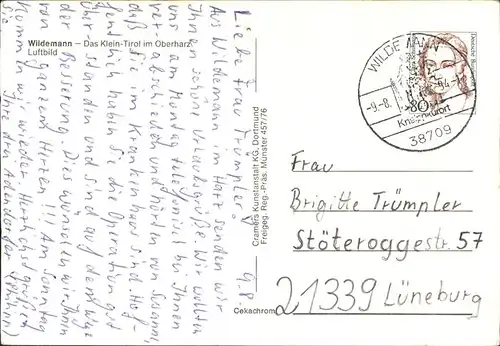 Wildemann – Das Klein-Tirol im Oberharz
Luftbild
9.8.
Liebe Frau Trümpler!
Aus Wildemann im Harz senden wir
Ihnen schöne Urlaubsgrüße. Wir wollten
uns am Montag telefonisch bei Ihnen
verabschieden u. hörten von Susann,
daß Sie im Krankenhaus sind. Hof-
fentlich haben Sie die Operation gut
überstanden und sind auf dem Wege
der Besserung. Dies wünschen wir Ihnen
von ganzem Herzen!!! Am Sonntag
kommen wir wieder. Herzlichst grüßen
Ihre drei
Cramers Kunstanstalt KG, Dortmund
Freigeg. Reg.-Präs. Münster 457/76
Cekachrom
WILDEMANN
-9.-8.
Kneippkurort
38709
80
Deutsche Bundespost
Frau
Brigitte Trümpler
Stöteroggestr. 57
21339 Lüneburg